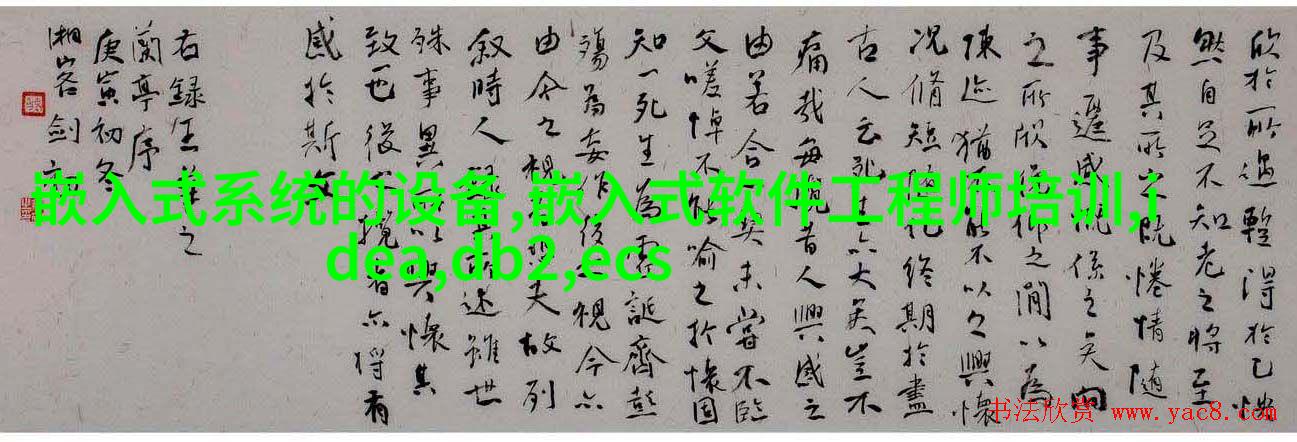 欣於所遇蹔得於己怏
然自足不知老之將至
及其所之既惓情隨
事遷感慨係之矣向
之所欣俛仰之間以為
陳迹猶不能不以之興懷
況脩短隨化終期於盡
古人云死生亦大矣豈不
痛哉每覽昔人興感之
由若合一契未嘗不臨
文嗟悼不能喻之於懷固
知一死生為虛誕齊彭
殤為妄作後之視今亦
由今之視昔悲夫故列
敘時人錄其所述雖世
殊事異所以興懷其
致一也後之攬者亦將有
感於斯文
右錄王羲之
蘭亭序
庚寅初冬
湘客劍
嵌入式系统的设备,嵌入式软件工程师培训,i
dea,db2,ecs
书法欣赏 www.yac8.com